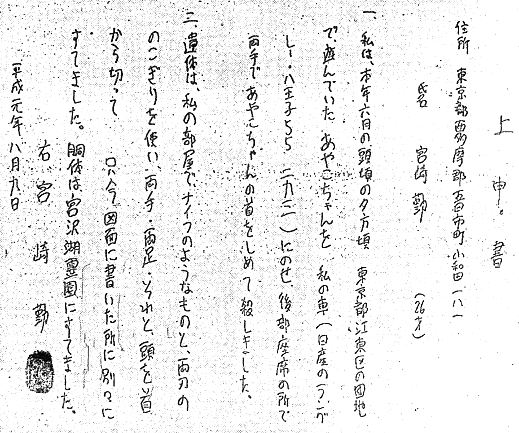 上申書
住所 東京都西多摩郡五日市町小和田一八一
氏名 宮﨑勤 (26才)
一、私は、本年六月の頭頃の夕方頃 東京都江東区の団地
で、遊んでいた あやこちゃんを 私の車(日産のラング
レー 八王子55 二九三一)にのせ、後部座席の所で
両手であやこちゃんの首をしめて殺しました。
二、遺体は、私の部屋で、ナイフのようなものと、両刃の
のこぎりを使い、両手・両足・それと、頭を首
から切って 只今図面に書いた所に別々に
すてました。胴体は宮沢湖霊園にすてました。
平成元年八月九日
右 宮﨑勤